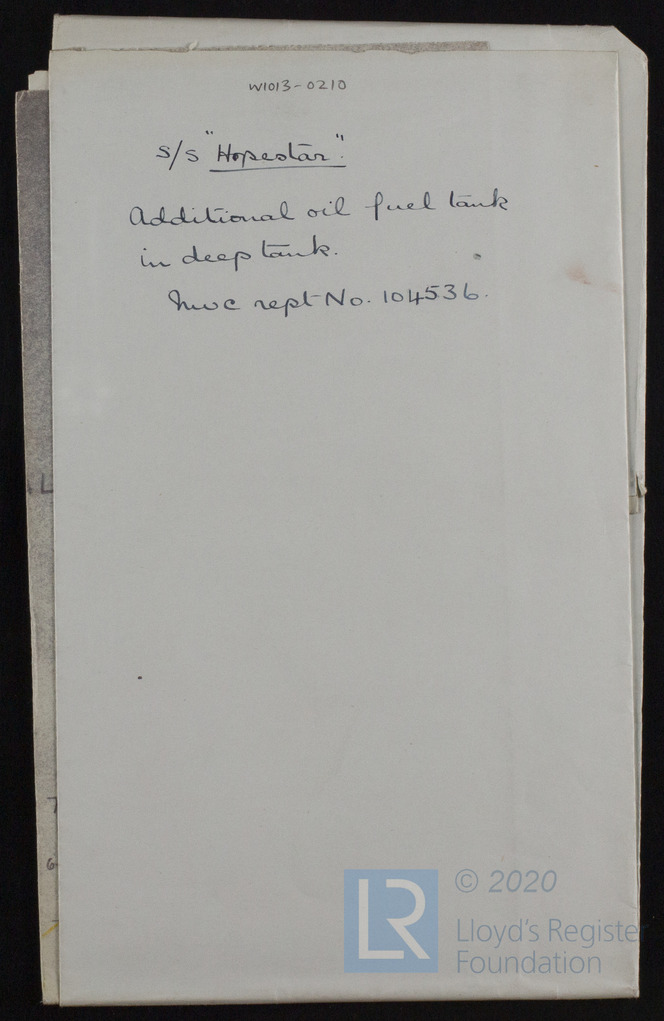 W1013-0210
s/s "Hopestar".
Additional oil fuel tank
in deep tank.
Nwc rept No. 104536.
L
7
6
LR
© 2020
Lloyd's Registe
Foundation